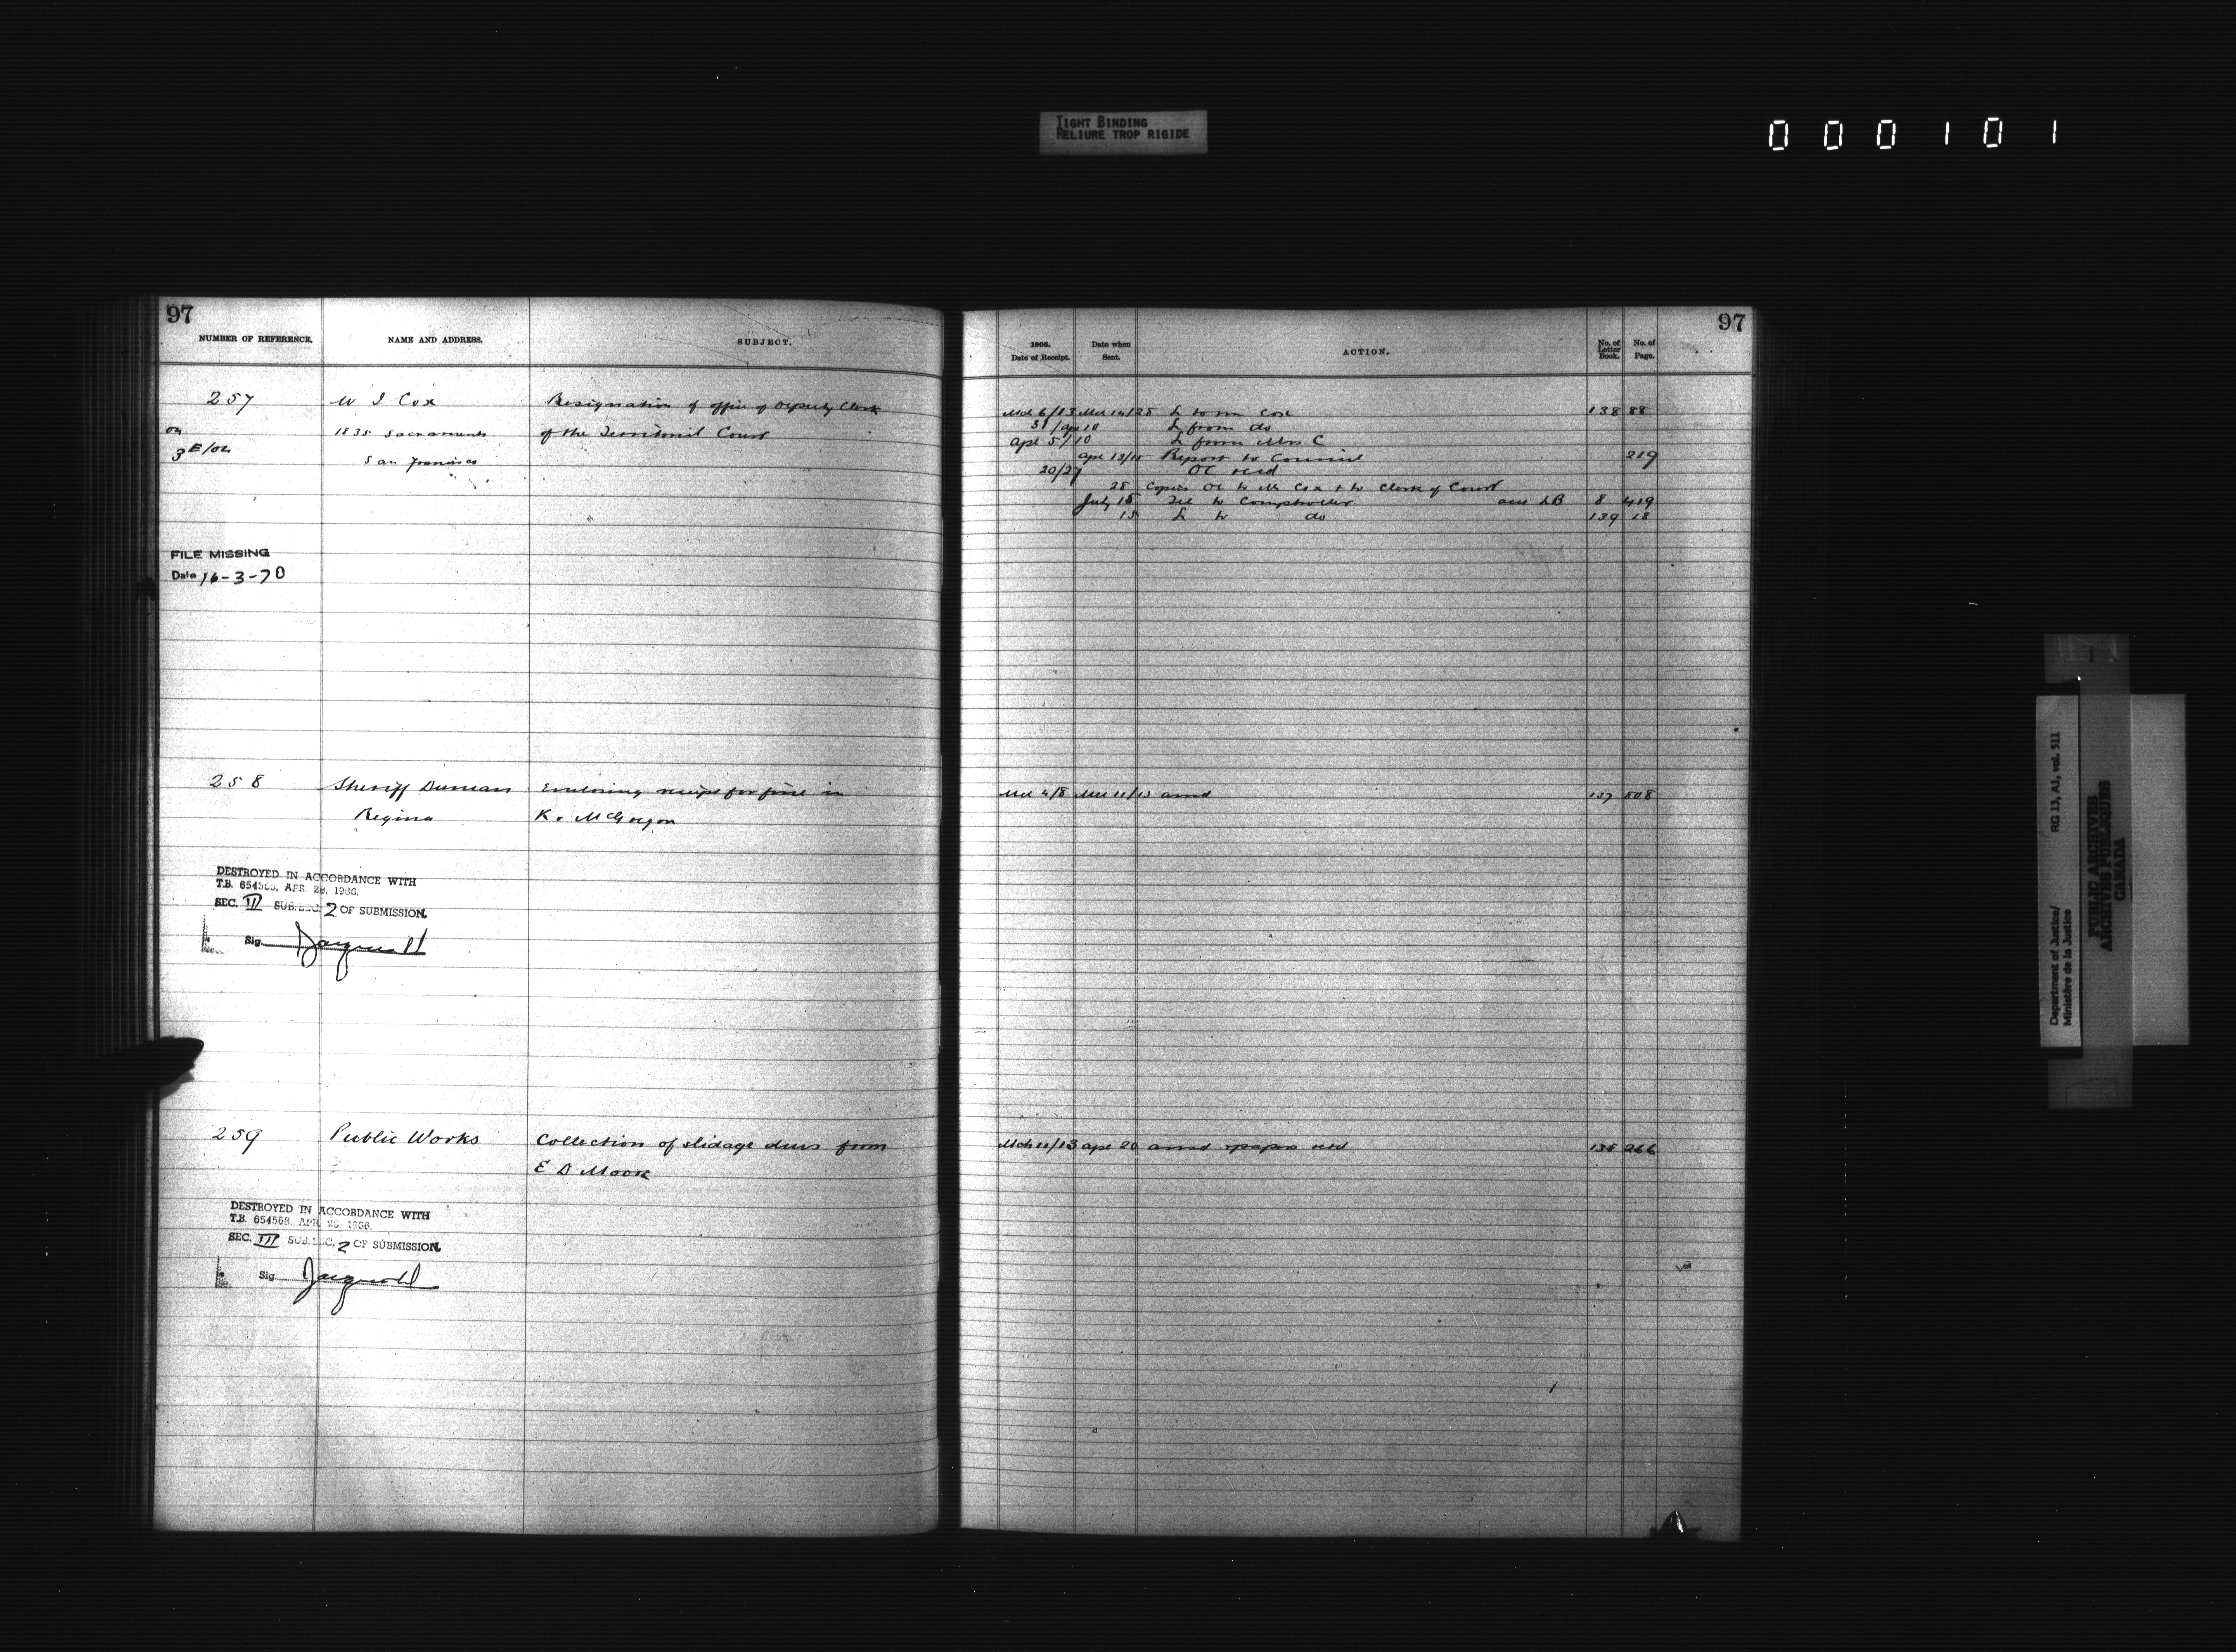 TIGHT BINDING
RELIURE TROP RIGIDE
000101
97
NUMBER OF REFERENCE. NAME AND ADDRESS. SUBJECT.
257 W J Cox Resignation of office of Deputy Clerk
on 1835 Sacramento of the Territorial Court
3E/02 San Francisco
FILE MISSING
Date 16-3-70
258 Sheriff Duncan Enclosing receipt for fine in
Regina K v McGregor
DESTROYED IN ACCORDANCE WITH
T.B. 654563, APR. 26, 1966.
SEC. III SUB.SEC. 2 OF SUBMISSION.
Sig
259 Public Works Collection of slidage dues from
E D Moore
DESTROYED IN ACCORDANCE WITH
T.B. 654563, APR. 26, 1966.
SEC. III SUB.SEC. 2 OF SUBMISSION.
Sig
97
1905. Date of Receipt. Date when Sent. ACTION. No. of Letter Book. No. of Page.
Mch 6/13 Mch 14/25 L to Cox 138 88
31/Apr 10 L from do
Apr 5/10 L from Mrs C
Apr 13/15 Report to Council 219
20/27 OC recd
28 Copies OC to Mr Cox & to Clerk of Court
July 15 Tel to Comptroller LB 8 419
15 L to do 139 18
Mch 4/8 Mch 11/13 ansd 137 808
Mch 11/13 Apr 20 ansd & papers retd 138 266
Department of Justice/
Ministère de la Justice
RG 13, A1, vol. 511
PUBLIC ARCHIVES
ARCHIVES PUBLIQUES
CANADA